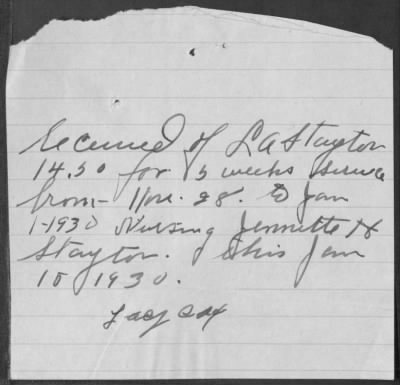 Received of L A Stayton
14.50 for 5 weeks service
from - Nov. 28. to Jan
1-1930 Nursing Jennette H
Stayton. This Jan
10 1930.
Lacy Cox